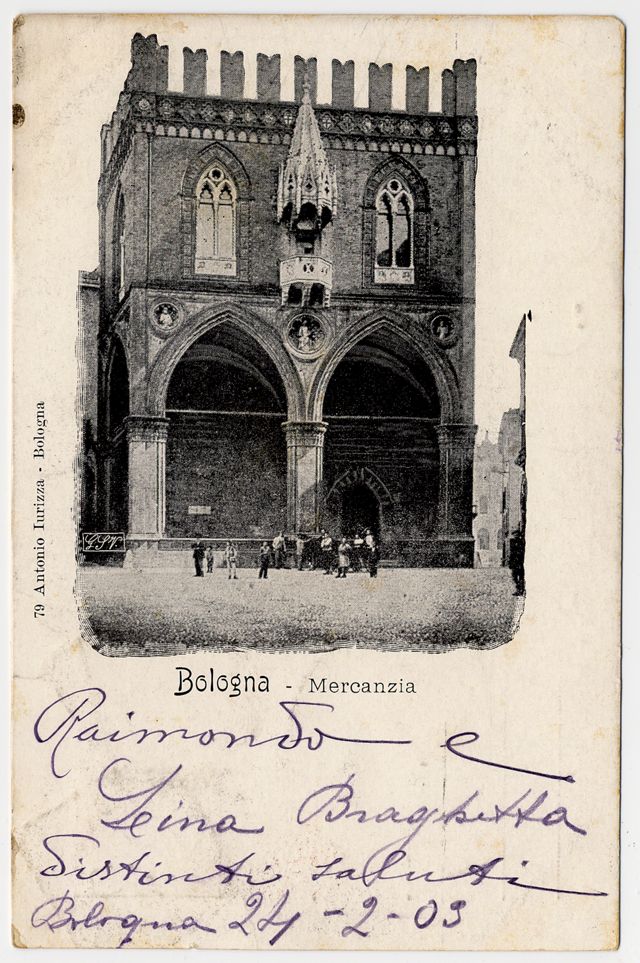 79 Antonio Iurizza - Bologna
Bologna - Mercanzia
Raimondo e
Lina Braghetta
distinti saluti
Bologna 24-2-03